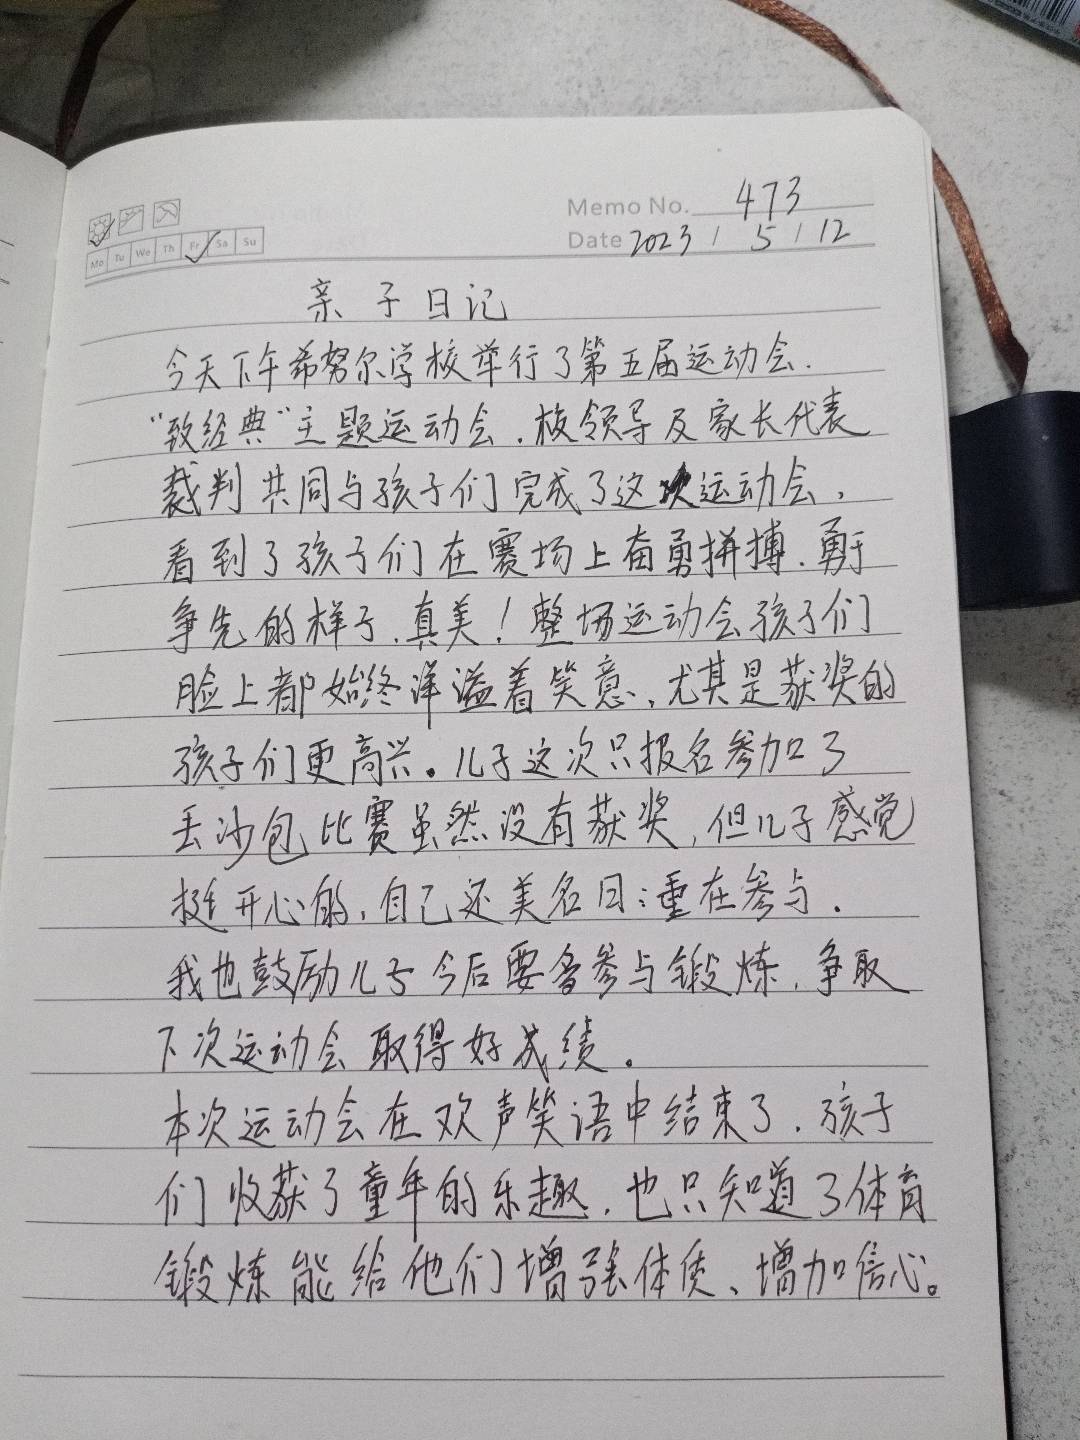 Memo No. 473
Mo Tu We Th Fr Sa Su
Date 2023 / 5 / 12
亲子日记
今天下午希努尔学校举行了第五届运动会.
"致经典"主题运动会,校领导及家长代表
裁判共同与孩子们完成了这次运动会,
看到了孩子们在赛场上奋勇拼搏.勇于
争先的样子,真美!整场运动会孩子们
脸上都始终洋溢着笑意,尤其是获奖的
孩子们更高兴。儿子这次只报名参加了
丢沙包比赛虽然没有获奖,但儿子感觉
挺开心的,自己还美名曰:重在参与.
我也鼓励儿子今后要多参与锻炼,争取
下次运动会取得好成绩。
本次运动会在欢声笑语中结束了.孩子
们收获了童年的乐趣.也只知道了体育
锻炼能给他们增强体质、增加信心。